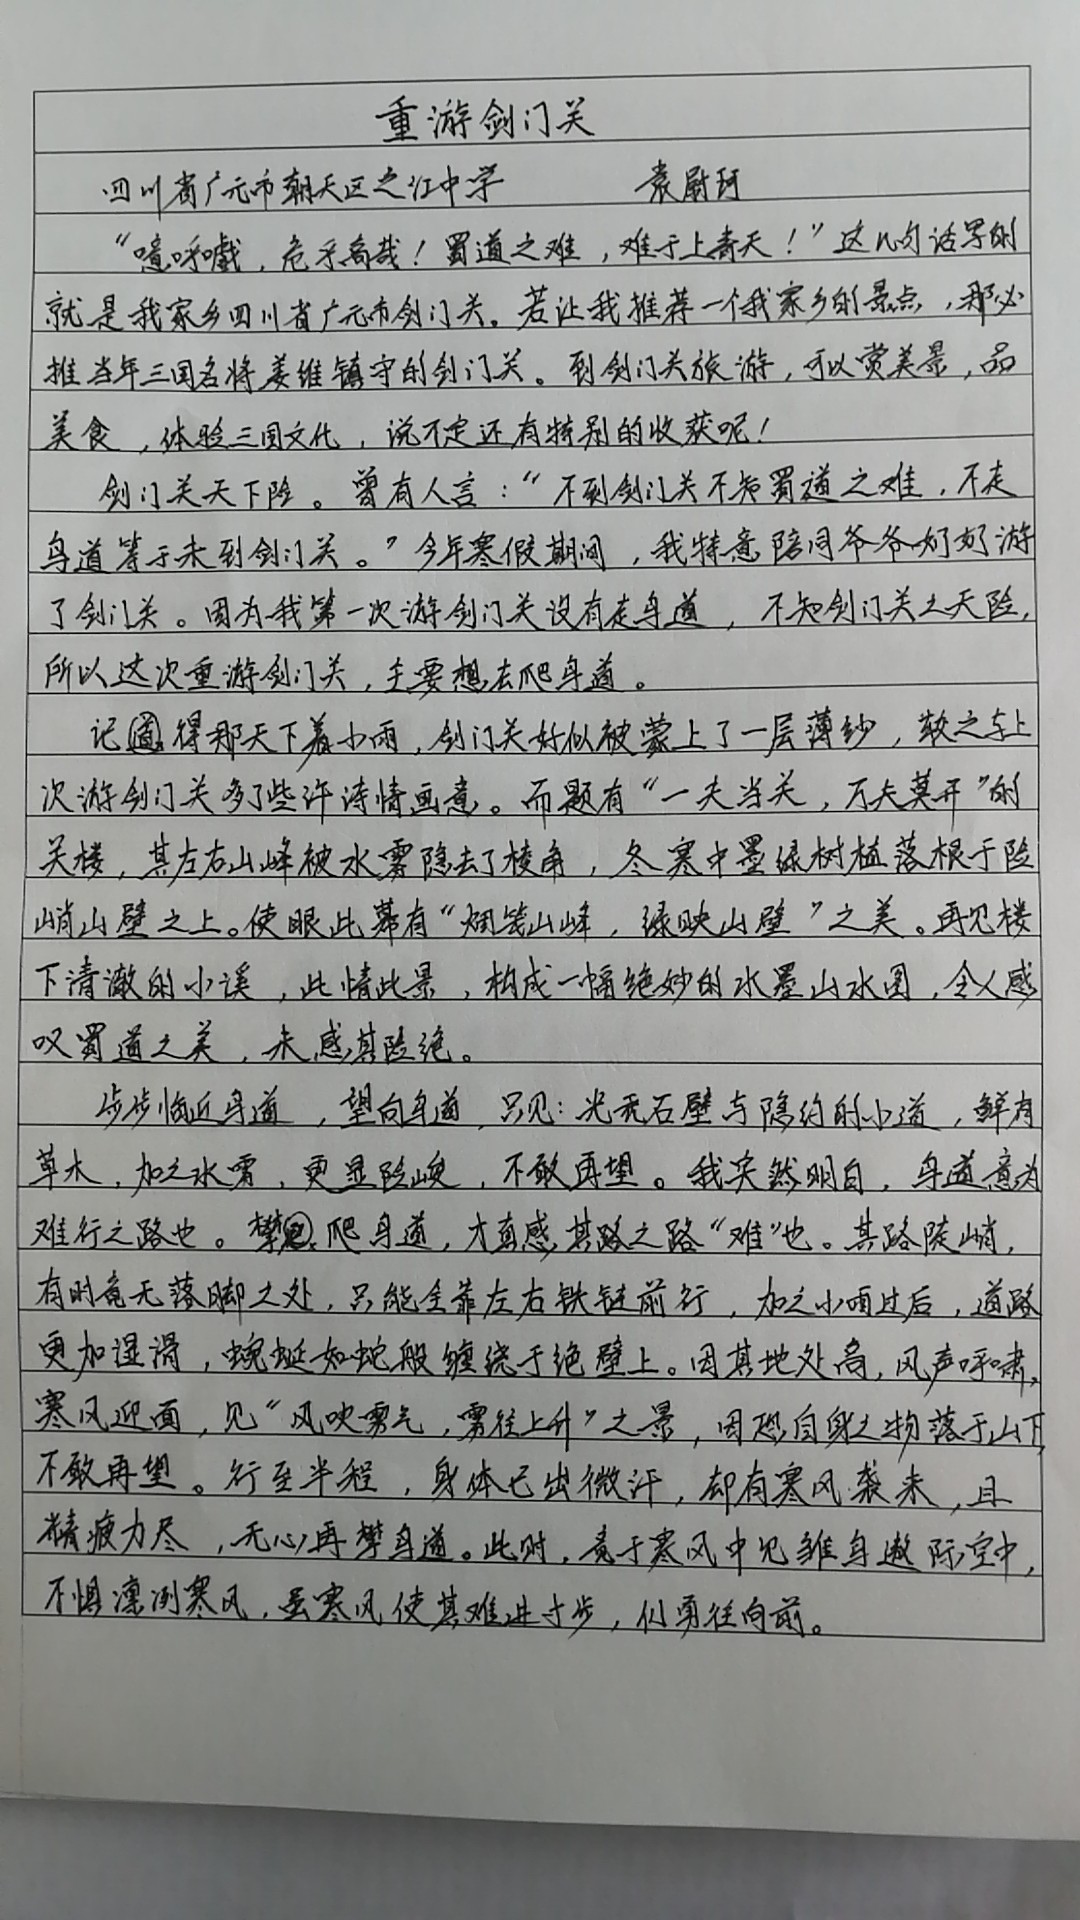 重游剑门关
四川省广元市朝天区之江中学 袁尉珂
“噫吁嚱，危乎高哉！蜀道之难，难于上青天！”这几句话写的
就是我家乡四川省广元市剑门关。若让我推荐一个我家乡的景点，那必
推当年三国名将姜维镇守的剑门关。到剑门关旅游，可以赏美景，品
美食，体验三国文化，说不定还有特别的收获呢！
剑门关天下险。曾有人言：“不到剑门关不知蜀道之难，不走
鸟道等于未到剑门关。”今年寒假期间，我特意陪同爷爷奶奶游
了剑门关。因为我第一次游剑门关没有走鸟道，不知剑门关之天险，
所以这次重游剑门关，主要想去爬鸟道。
记得那天下着小雨，剑门关好似被蒙上了一层薄纱，较之与上
次游剑门关多了些许诗情画意。而题有“一夫当关，万夫莫开”的
关楼，其左右山峰被水雾隐去了棱角，冬寒中墨绿树植落根于险
峭山壁之上。使眼此幕有“烟笼山峰，绿映山壁”之美。再见楼
下清澈的小溪，此情此景，构成一幅绝妙的水墨山水图，令人感
叹蜀道之美，未感其险绝。
步步临近鸟道，望向鸟道，只见：光秃石壁与隐约的小道，鲜有
草木，加之水雾，更显险峻，不敢再望。我突然明白，鸟道意为
难行之路也。攀爬鸟道，才真感其路之路“难”也。其路陡峭，
有时竟无落脚之处，只能全靠左右铁链前行，加之小雨过后，道路
更加湿滑，蜿蜒如蛇般缠绕于绝壁上。因其地处高，风声呼啸，
寒风迎面，见“风吹雾气，雾往上升”之景，因恐自身之物落于山下，
不敢再望。行至半程，身体已出微汗，却有寒风袭来，且
精疲力尽，无心再攀鸟道。此时，竟于寒风中见雏鸟遨际空中，
不惧凛冽寒风，虽寒风使其难进寸步，仍勇往向前。